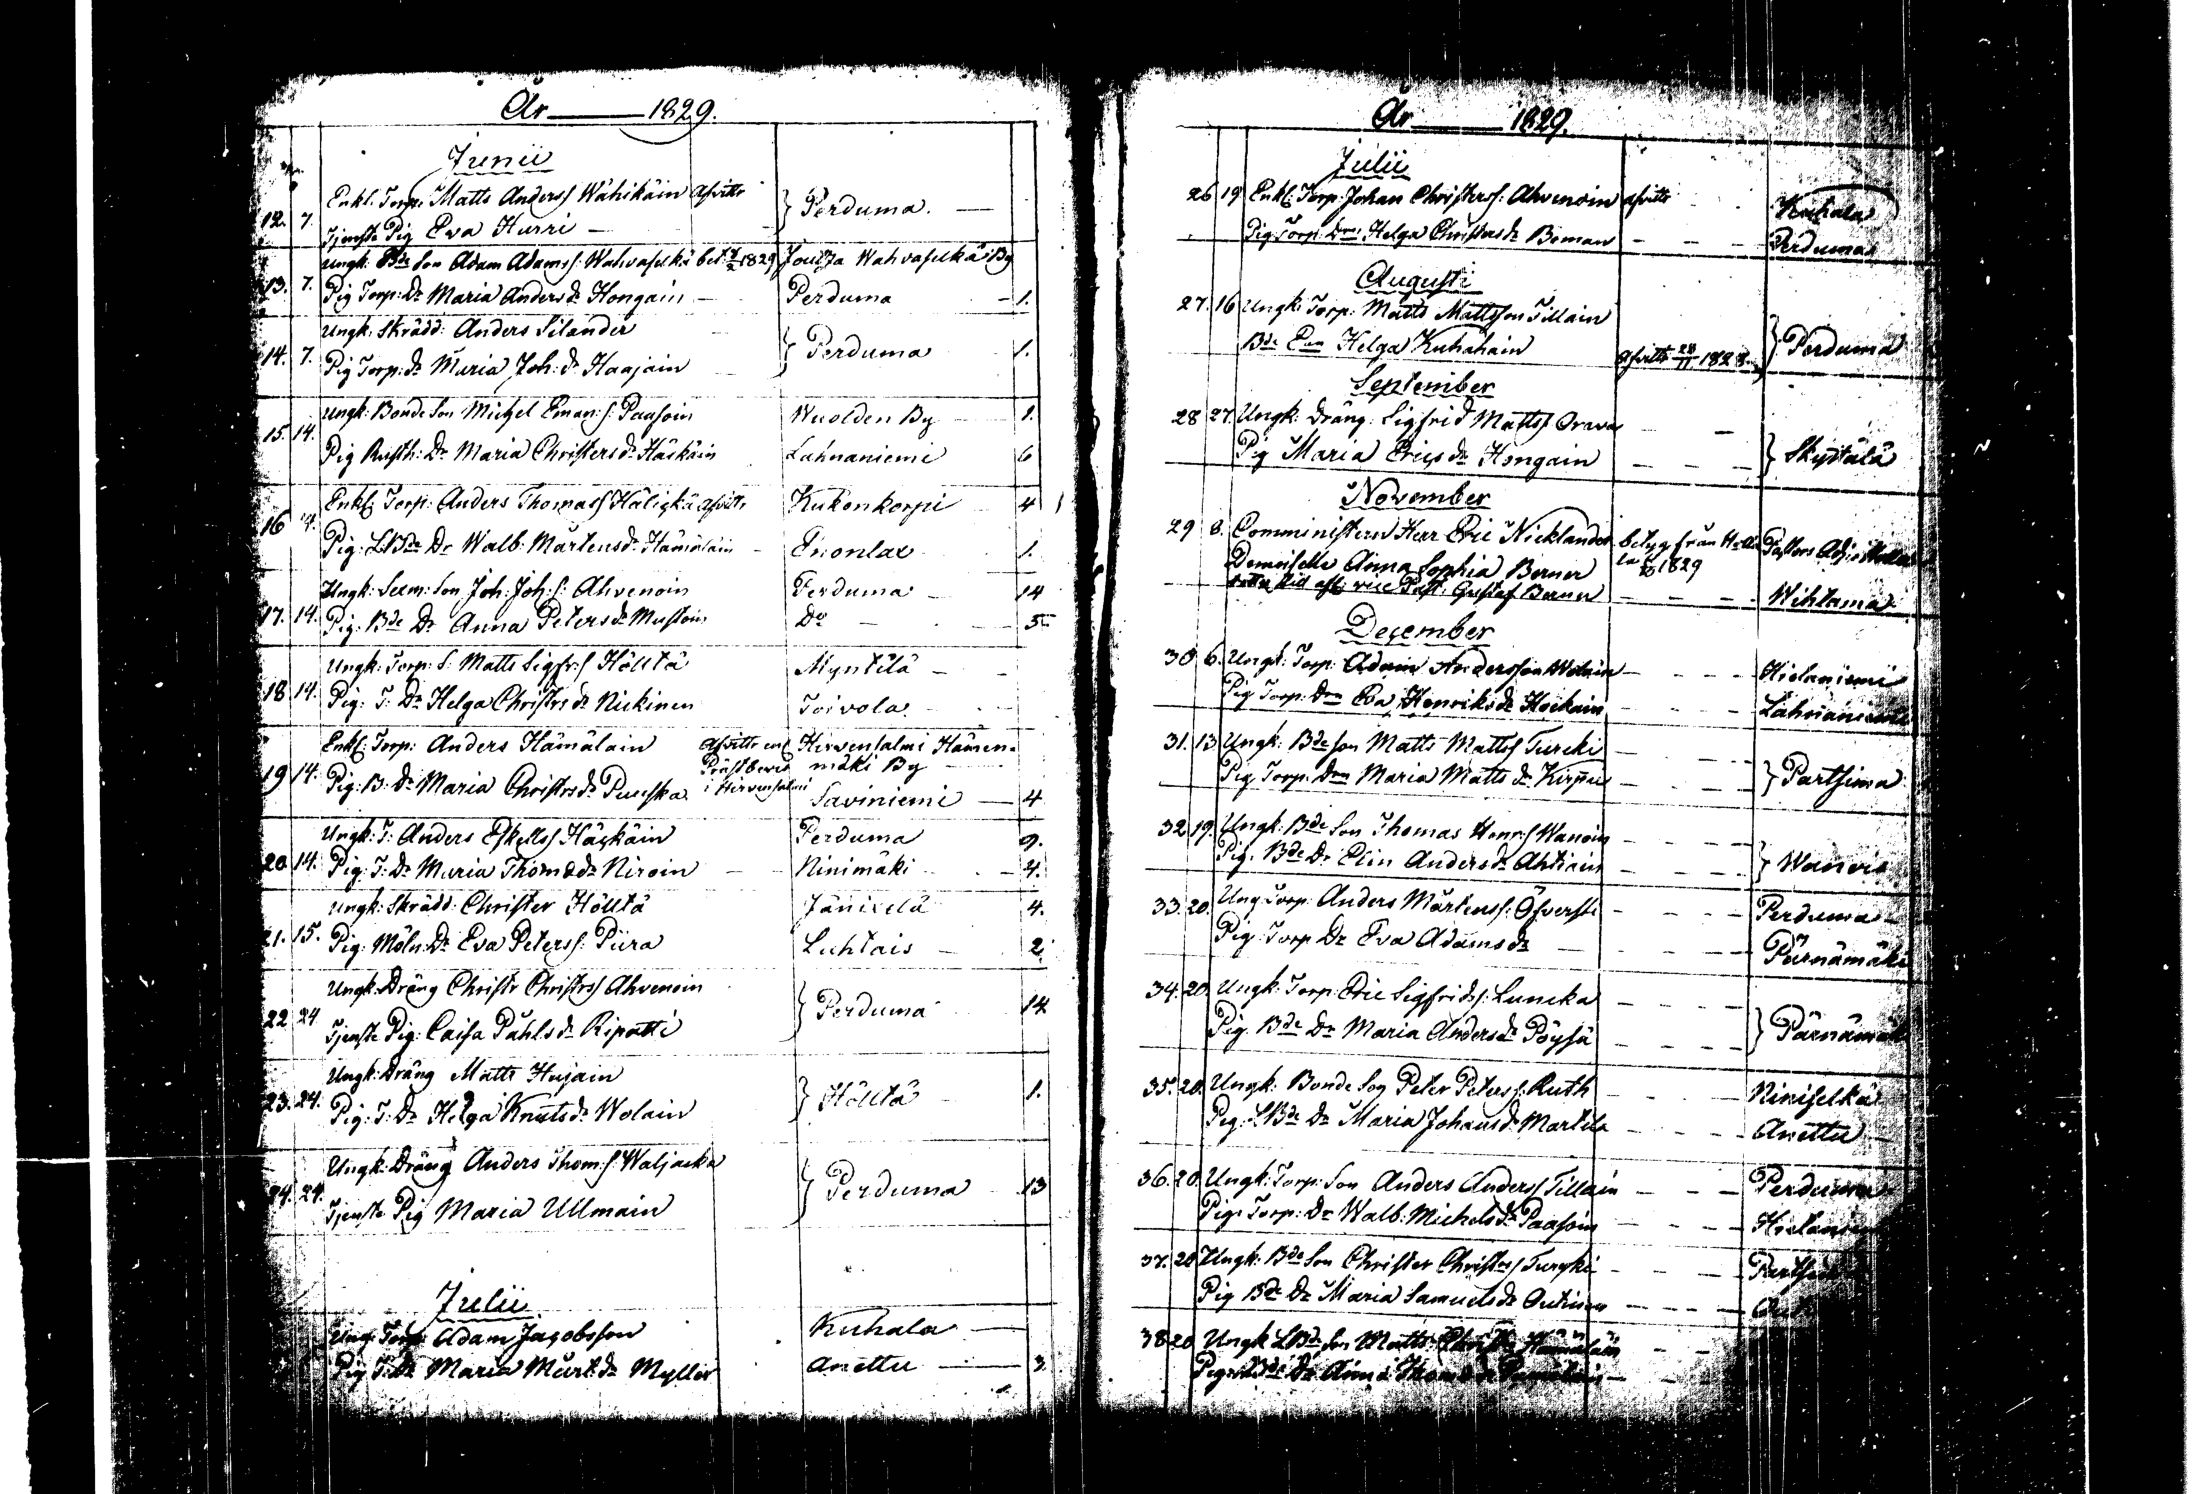 År 1829.
Junii
12. 7. Enkl. Torp. Matts Anders Wähikäin afvittr Perduma
Tjenste Pig Eva Hurri
13. 7. Ungk: Bde Son Adam Adamss: Wahvaselkä bet. 1829 Wahvaselkä By
Pig Torp: Dr Maria Anders dr Hongain Perduma 1.
14. 7. Ungk. Skrädd: Anders Silander Perduma 1.
Pig Torp: dr Maria Joh: dr Haajain
15. 14. Ungk: Bonde Son Michel Eman: s: Paasoin Wuolden By 1.
Pig Rusth: Dr Maria Christers dr Häskäin Lahnaniemi 6
16 Enkl: Torp: Anders Thomass Häligkä afvittr Kukonkorpi 4
Pig: LBde Dr Walb. Mårtens dr Hämäläin 1.
17. 14. Ungk: Son Joh: Joh: s: Ahvenoin Perduma 14
Pig: Bde Dr Anna Peters dr Mustoin Do 5
18 14. Ungk: Torp: S: Matts Sigfr: s Hölttä Myntilä
Pig: T: Dr Helga Christrs dr Nickinen Toivola
19 14. Enkl: Torp: Anders Hämäläin afvittr enl Hirvensalmi Hämen-
Prästbevis mäki By
Pig: B: Dr Maria Christrs dr Puuska i Hirvensalmi Saviniemi 4
20 14. Ungk: T: Anders Eskells Häskäin Perduma 9.
Pig: T: Dr Maria Thom dr Niroin Ninimäki 4.
21. 15. Ungk: Skrädd: Christer Hölttä Jänixelä 4.
Pig: Möln: Dr Eva Peters: Piira Luhtais 2
22 24 Ungk: Dräng Christr Christrs Ahvenoin Perduma 14
Tjenste Pig: Caisa Påhls dr Ripatti
23. 24. Ungk: Dräng Matts Hujain Hölttä 1.
Pig: T: Dr Helga Knuts dr Wolain
24. 24. Ungk: Dräng Anders Thom: s: Waljacka Perduma 13
Tjenste Pig Maria Ullmain
Julii
Ung: Torp: Adam Jacobsson Kuhala
Pig T: Dr Maria Mårt: dr Myller Anettu 3
År 1829.
Julii
26 19 Enkl: Torp: Johan Christerss: Ahvenoin afvittr Kuhala
Pig Torp: Drn Helga Christers dr Boman Perduma
Augusti
27. 16 Ungk: Torp: Matts Mattsson Tillain Perduma
Bde Enn Helga Kuhahain afvittr 28/11 1828.
September
28 27 Ungk: Dräng: Sigfrid Mattss Orava Skyttälä
Pig Maria Erics dr Hongain
November
29 8. Comministern Herr Eric Nicklander betyg från 1829 Pastors
Demoiselle Anna Sophia Berner
vice Past: Gustaf Berner Wihtama
December
30 6. Ungk: Torp: Adam Andersson Wolain Hielaniemi
Pig Torp: Drn Eva Henriks dr Hockain Lahnaniemi
31. 13 Ungk: Bde son Matts Matts Turcki Partsima
Pig Torp: Drn Maria Matts dr Kirpu
32 19. Ungk: Bde Son Thomas Henr: s Wanoin
Pig. Bde Dr Elin Anders dr Ahtiain
33. 20. Ung Torp: Anders Mårtenss: Öfversti Perduma
Pig Torp Dr Eva Adams dr Pärnämäki
34. 20. Ungk: Torp: Eric Sigfrids: Luncka Pärnämäki
Pig: Bde Dr Maria Anders dr Pöysä
35. 20. Ungk: Bonde Son Peter Peterss: Ruth Niniselkä
Pig: LBde Dr Maria Johans dr Martila Anettu
36. 20. Ungk: Torp: Son Anders Anders Tillain Perduma
Pig. Torp: Dr Walb: Michels dr Paasoin
37. 20 Ungk: Bde Son Christer Christers Turcki
Pig Bde Dr Maria Samuels dr Outinen
38 20 Ungk LBde Son Matts Hämäläin
Pig Dr Anna